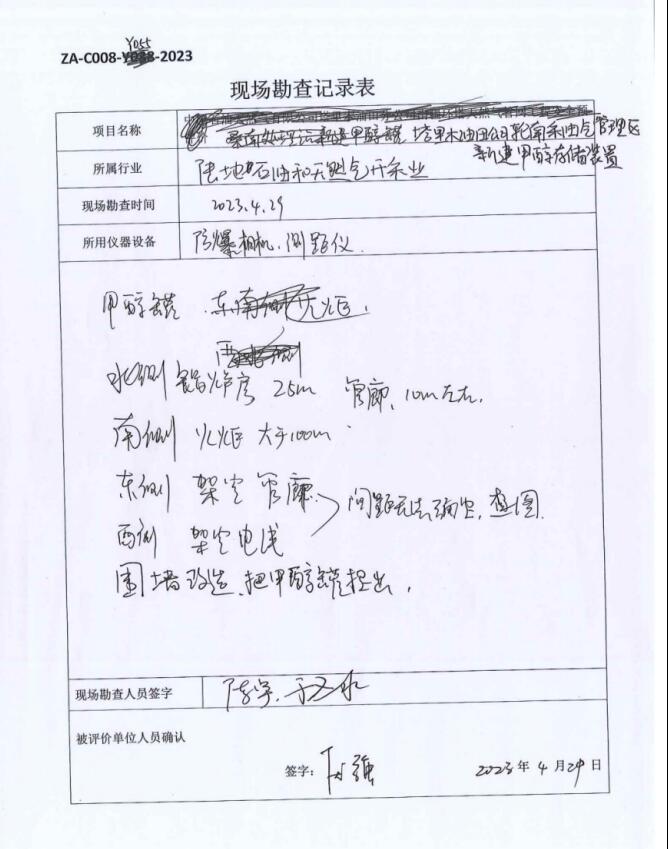 Y055
ZA-C008-Y038-2023
现场勘查记录表
项目名称
塔里木油田公司轮南采油气管理区
新建甲醇存储装置
所属行业 陆地石油和天然气开采业
现场勘查时间 2023.4.29
所用仪器设备 防爆相机、测距仪
甲醇罐 东 火炬
北侧 锅炉房 25m 管廊、10m左右
南侧 火炬 大于100m
东侧 架空管廊
间距无法确定,查图
西侧 架空电线
围墙改造,把甲醇罐
现场勘查人员签字
被评价单位人员确认
签字:
2023年4月29日